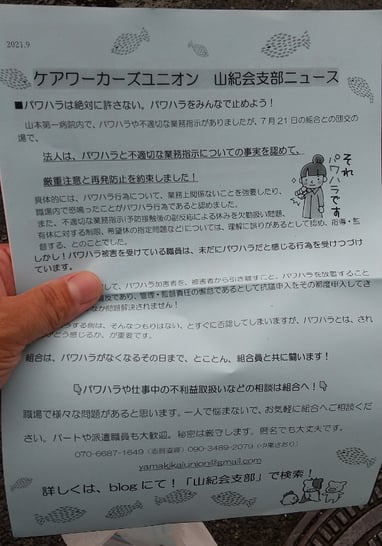 2021.9
ケアワーカーズユニオン 山紀会支部ニュース
■パワハラは絶対に許さない。パワハラをみんなで止めよう!
山本第一病院内で、パワハラや不適切な業務指示がありましたが、7月21日の組合との団交の
場で、
法人は、パワハラと不適切な業務指示についての事実を認めて、
厳重注意と再発防止を約束しました!
それ
パワハラです
具体的には、パワハラ行為について、業務上関係ないことを強要したり、
職場内で怒鳴ったことがパワハラ行為であると認めました。
また、不適切な業務指示(予防接種後の副反応による休みを欠勤扱い問題、
有休に対する制限、希望休の指定問題など)については、理解に誤りがあるとして認め、指導・監
督する、とのことでした。
しかし!パワハラ被害を受けている職員は、未だにパワハラだと感じる行為を受けつづけ
ています。
して、パワハラ加害者を、被害者から引き離すこと、パワハラを放置すること
であり、管理・監督責任の懈怠であるとして抗議申入をその都度申入してき
問題解決されません!
する側は、そんなつもりはない、とすぐに否認してしまいますが、パワハラとは、され
どう感じるか、が重要です。
組合は、パワハラがなくなるその日まで、とことん、組合員と共に闘います!
パワハラや仕事中の不利益取扱いなどの相談は組合へ!
職場で様々な問題があると思います。一人で悩まないで、お気軽に組合へご相談くだ
さい。パートや派遣職員も大歓迎。秘密は厳守します。匿名でも大丈夫です。
070-6687-1649 090-3489-2079
yamakikaiunion@gmail.com
詳しくは、blogにて!「山紀会支部」で検索!